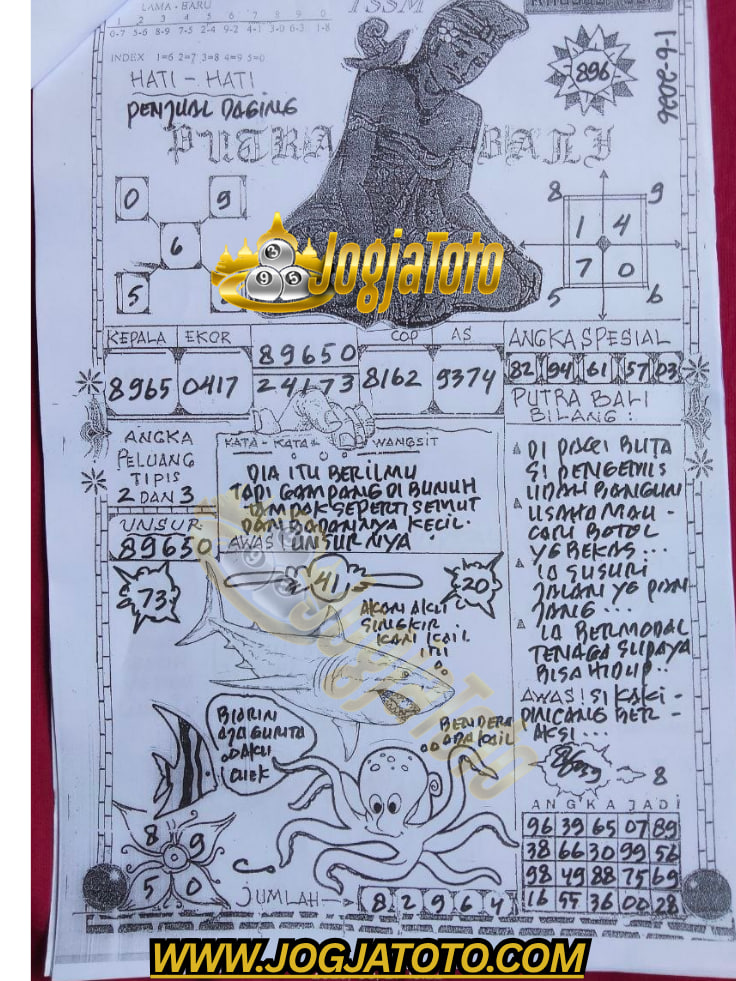 LAMA - BARU
TSSM
1 2 3 4 5 6 7 8 9 0
0-7 5-6 8-9 7-5 2-4 9-2 4-1 3-0 6-3 1-8
INDEX 1=6 2=7 3=8 4=9 5=0
HATI - HATI
PENJUAL DAGING
896
1-6-2026
PUTRA BALI
0 9
6
5
JogjaToto
8 9
1 4
7 0
5 6
KEPALA EKOR
8965 0417
89650
24173
COP AS
8162 9374
ANGKA SPESIAL
82 94 61 57 03
PUTRA BALI
BILANG :
ANGKA
PELUANG
TIPIS
2 DAN 3
UNSUR
89650
KATA - KATA WANGSIT
DIA ITU BERILMU
TAPI GAMPANG DI BUNUH
TAMPAK SEPERTI SEMUT
DAN BADANNYA KECIL.
AWAS! UNSURNYA
DI PAGI BUTA
SI PENGEMIS
UDAH BANGUN
USAHA MAU -
CARI BOTOL
YG BEKAS ...
IA SUSURI
JALAN YG PAN
JANG ...
IA BERMODAL
TENAGA SUPAYA
BISA HIDUP ..
AWAS! SI KAKI -
PINCANG BER -
AKSI ...
73
41
20
AKAN AKU
SINGKIR
KAN KAIL
ITU
JogjaToto
BIARIN
AJA GURITA
DAKU
CUEK
BENDERA
ADA KAIL
8
8 9
5 0
JUMLAH
8 2 9 6 4
ANGKA JADI
96 39 65 07 89
38 66 30 99 56
98 49 88 75 69
16 55 36 00 28
WWW.JOGJATOTO.COM